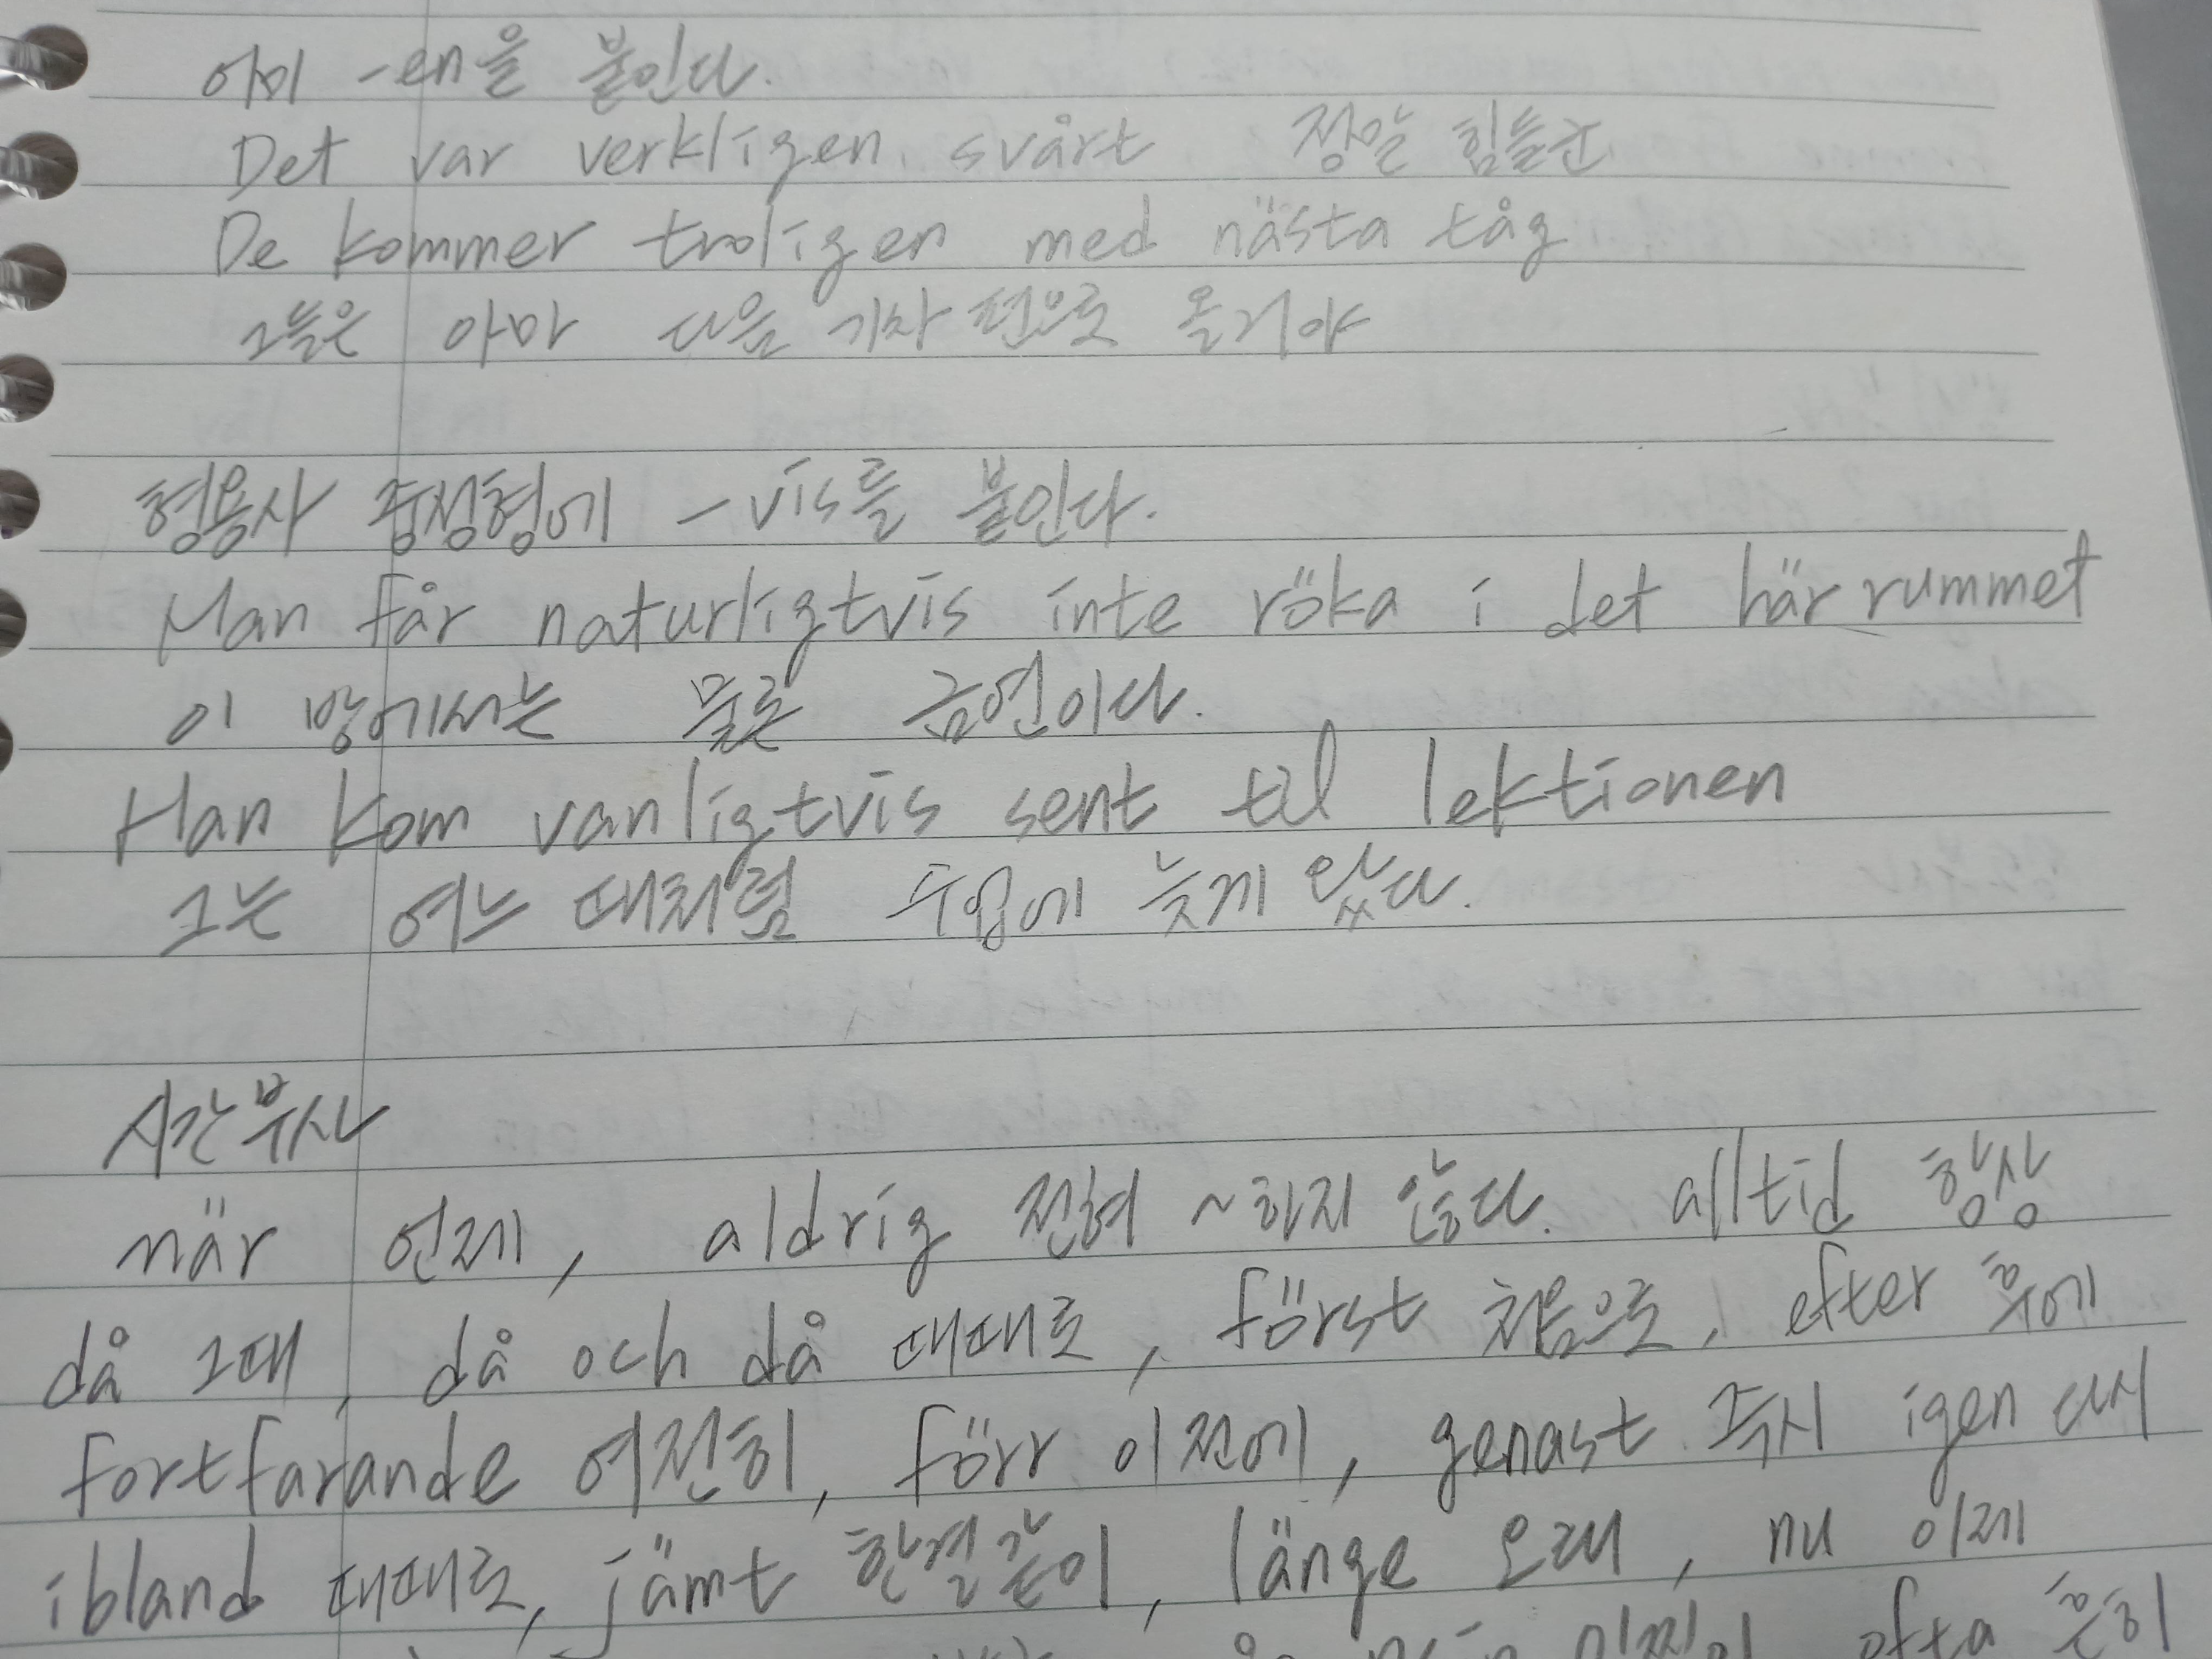 어미 -en을 붙인다.
Det var verkligen svårt 정말 힘들군
De kommer troligen med nästa tåg
그들은 아마 다음 기차 편으로 올거야
형용사 중성형에 -vis를 붙인다.
Man får naturligtvis inte röka i det här rummet
이 방에서는 물론 금연이다.
Han kom vanligtvis sent til lektionen
그는 여느 때처럼 수업에 늦게 왔다.
시간부사
när 언제, aldrig 전혀 ~하지 않는다. alltid 항상
då 그때, då och då 때때로, först 처음으로, efter 후에
fortfarande 여전히, förr 이전에, genast 즉시 igen 다시
ibland 때때로, jämt 한결같이, länge 오래, nu 이제
ofta 흔히